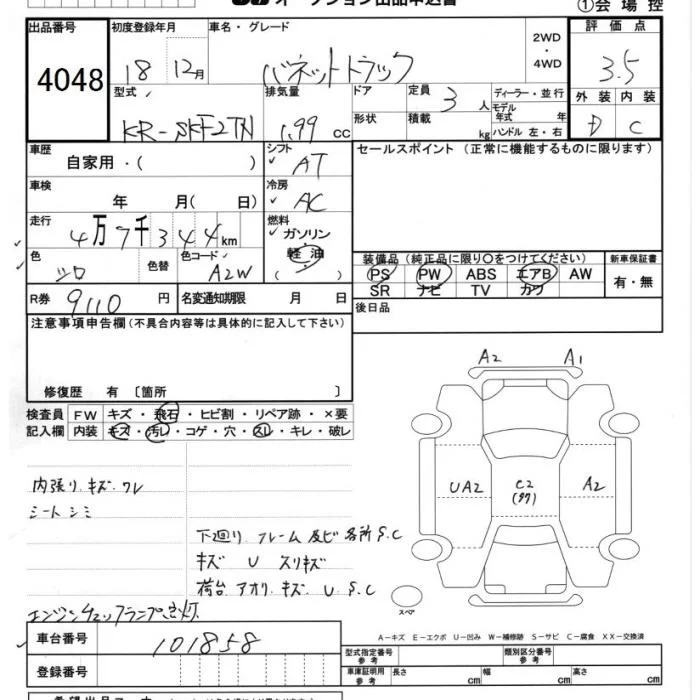 オークション出品申込書
①会場控
出品番号
4048
初度登録年月
18 12月
車名・グレード
バネットトラック
2WD
・
4WD
評価点
3.5
外装 内装
D C
型式
KR-SKF2TN
排気量
1.99 cc
ドア
形状
定員 3 人
積載 kg
ディーラー・並行
モデル年式 年
ハンドル 左・右
車歴
自家用・( )
シフト
AT
セールスポイント (正常に機能するものに限ります)
車検
年 月( 日)
冷房
AC
走行
4万7千344km
燃料
ガソリン
軽油
( )
色
シロ
色替
色コード
A2W
装備品 (純正品に限り○をつけてください)
PS PW ABS エアB AW
SR ナビ TV カワ
新車保証書
有・無
R券 9110 円
名変通知期限 月 日
後日品
注意事項申告欄 (不具合内容等は具体的に記入して下さい)
修復歴 有 〔箇所 〕
検査員
記入欄
FW キズ・飛石・ヒビ割・リペア跡・×要
内装 キズ・汚レ・コゲ・穴・スレ・キレ・破レ
内張リ キズ ワレ
シート シミ
下廻リ フレーム 及ビ 各所 S.C
キズ U スリキズ
荷台 アオリ キズ U S.C
エンジンチェックランプ点灯
A2 A1
UA2
C2
A2
スペア
A-キズ E-エクボ U-凹み W-補修跡 S-サビ C-腐食 XX-交換済
車台番号 101858
登録番号
型式指定番号
参考
類別区分番号
参考
車庫証明
参考
長さ cm 幅 cm 高さ cm